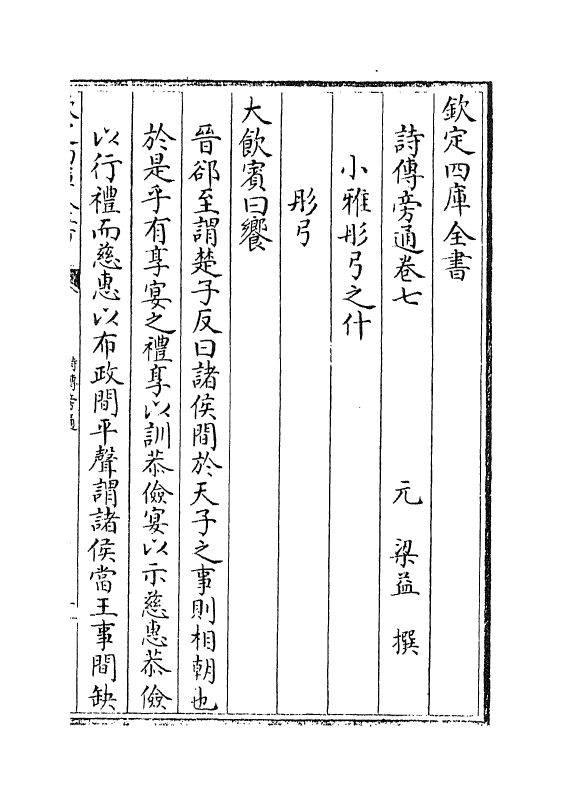 欽定四庫全書
詩傳旁通卷七
元 梁益 撰
小雅彤弓之什
彤弓
大飲賓曰饗
晉郤至謂楚子反曰諸侯間於天子之事則相朝也
於是乎有享宴之禮享以訓恭儉宴以示慈惠恭儉
以行禮而慈惠以布政間平聲謂諸侯當王事間缺